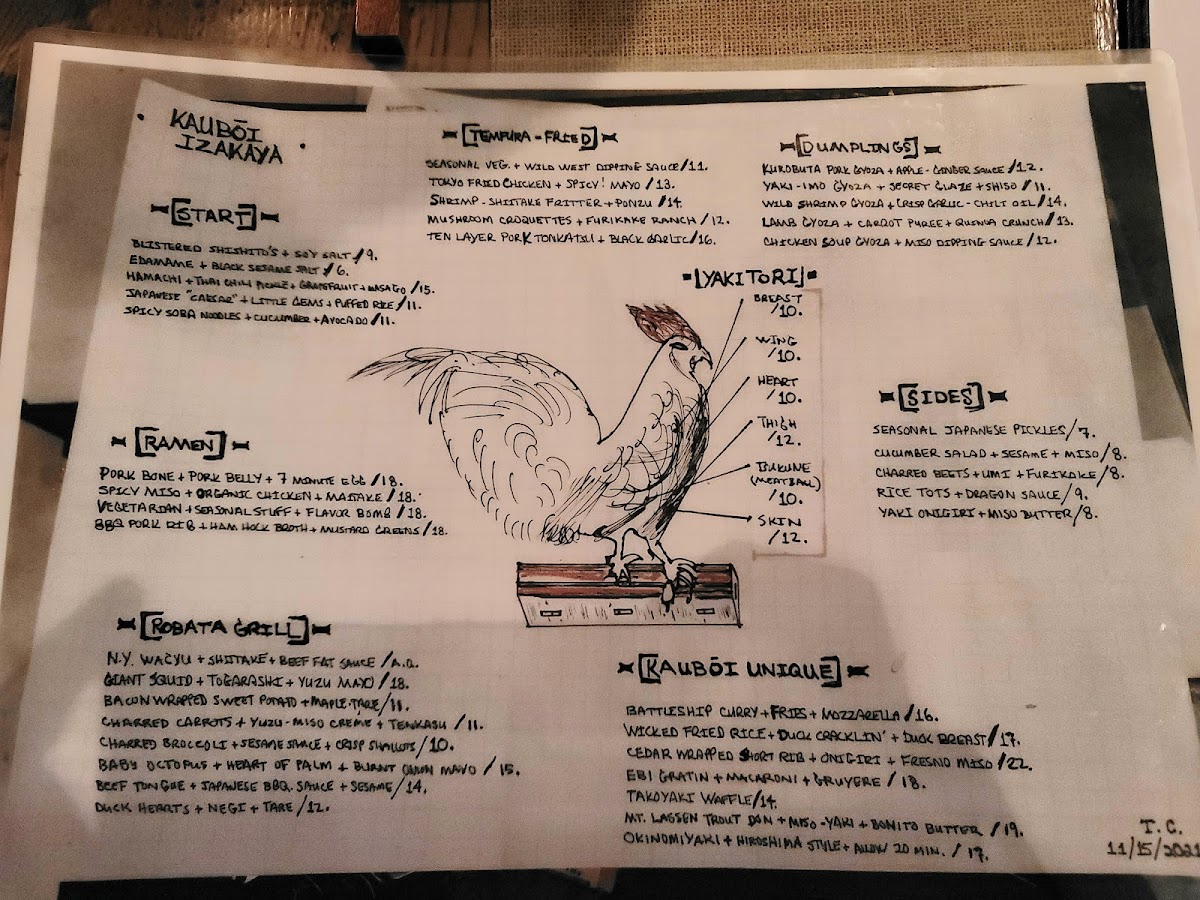 KAUBŌI
IZAKAYA
[START]
BLISTERED SHISHITO'S + SOY SALT / 9.
EDAMAME + BLACK SESAME SALT / 6.
HAMACHI + THAI CHILI PICKLE + GRAPEFRUIT + MASAGO / 15.
JAPANESE "CAESAR" + LITTLE GEMS + PUFFED RICE / 11.
SPICY SOBA NOODLES + CUCUMBER + AVOCADO / 11.
[TEMPURA-FRIED]
SEASONAL VEG. + WILD WEST DIPPING SAUCE / 11.
TOKYO FRIED CHICKEN + SPICY! MAYO / 13.
SHRIMP-SHIITAKE FRITTER + PONZU / 14.
MUSHROOM CROQUETTES + FURIKAKE RANCH / 12.
TEN LAYER PORK TONKATSU + BLACK GARLIC / 16.
[DUMPLINGS]
KUROBUTA PORK GYOZA + APPLE-GINGER SAUCE / 12.
YAKI-IMO GYOZA + SECRET GLAZE + SHISO / 11.
WILD SHRIMP GYOZA + CRISP GARLIC-CHILI OIL / 14.
LAMB GYOZA + CARROT PUREE + QUINOA CRUNCH / 13.
CHICKEN SOUP GYOZA + MISO DIPPING SAUCE / 12.
[YAKITORI]
BREAST
/10.
WING
/10.
HEART
/10.
THIGH
/12.
TSUKUNE
(MEATBALL)
/10.
SKIN
/12.
[SIDES]
SEASONAL JAPANESE PICKLES / 7.
CUCUMBER SALAD + SESAME + MISO / 8.
CHARRED BEETS + UMI + FURIKAKE / 8.
RICE TOTS + DRAGON SAUCE / 9.
YAKI ONIGIRI + MISO BUTTER / 8.
[RAMEN]
PORK BONE + PORK BELLY + 7 MINUTE EGG / 18.
SPICY MISO + ORGANIC CHICKEN + MAITAKE / 18.
VEGETARIAN + SEASONAL STUFF + FLAVOR BOMB / 18.
BBQ PORK RIB + HAM HOCK BROTH + MUSTARD GREENS / 18.
[ROBATA GRILL]
N.Y. WAGYU + SHIITAKE + BEEF FAT SAUCE / A.Q.
GIANT SQUID + TOGARASHI + YUZU MAYO / 18.
BACON WRAPPED SWEET POTATO + MAPLE-TARE / 11.
CHARRED CARROTS + YUZU-MISO CREME + TENKASU / 11.
CHARRED BROCCOLI + SESAME SAUCE + CRISP SHALLOTS / 10.
BABY OCTOPUS + HEART OF PALM + BURNT ONION MAYO / 15.
BEEF TONGUE + JAPANESE BBQ. SAUCE + SESAME / 14.
DUCK HEARTS + NEGI + TARE / 12.
[KAUBŌI UNIQUE]
BATTLESHIP CURRY + FRIES + MOZZARELLA / 16.
WICKED FRIED RICE + DUCK CRACKLIN' + DUCK BREAST / 17.
CEDAR WRAPPED SHORT RIB + ONIGIRI + FRESNO MISO / 22.
EBI GRATIN + MACARONI + GRUYERE / 18.
TAKOYAKI WAFFLE / 14.
MT. LASSEN TROUT DON + MISO-YAKI + BONITO BUTTER / 19.
OKINOMIYAKI + HIROSHIMA STYLE + ALLOW 20 MIN. / 17.
T.C.
11/15/2021